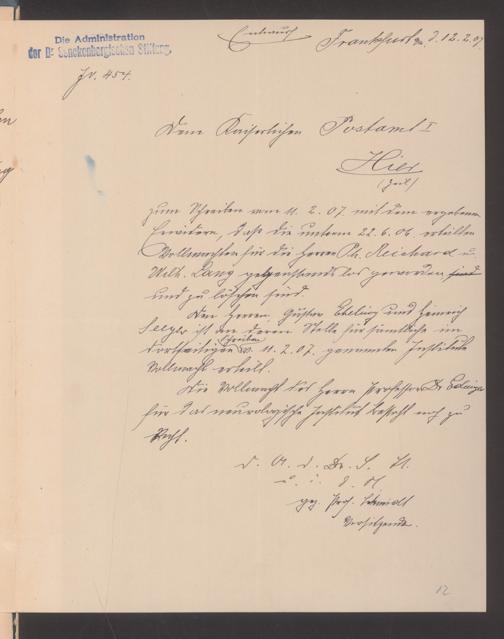 Entwurf
Frankfurt a. M. d. 12.2.07
Die Administration
der Dr. Senckenbergischen Stiftung.
Jv. 454.
Dem Kaiserlichen Postamt I
Hier
(Zeil)
zum Schreiben vom 11.2.07. mit dem ergebenen
Erwidern, daß die unterm 22.6.06. erteilten
Vollmachten für die Herren Ph. Reichard u.
Wilh. Lang gegenstandslos geworden sind
und zu löschen sind.
Den Herren Gustav Ebeling und Heinrich
Seeger ist an deren Stelle für sämtliche im
dortseitigen Schreiben v. 11.2.07. genannten Institute
Vollmacht erteilt.
Die Vollmacht des Herrn Professor Dr. Edinger
für das neurologische Institut besteht noch zu
Recht.
D. A. d. Dr. S. St.
gez. Prof. Schmidt
Vorsitzender.
12